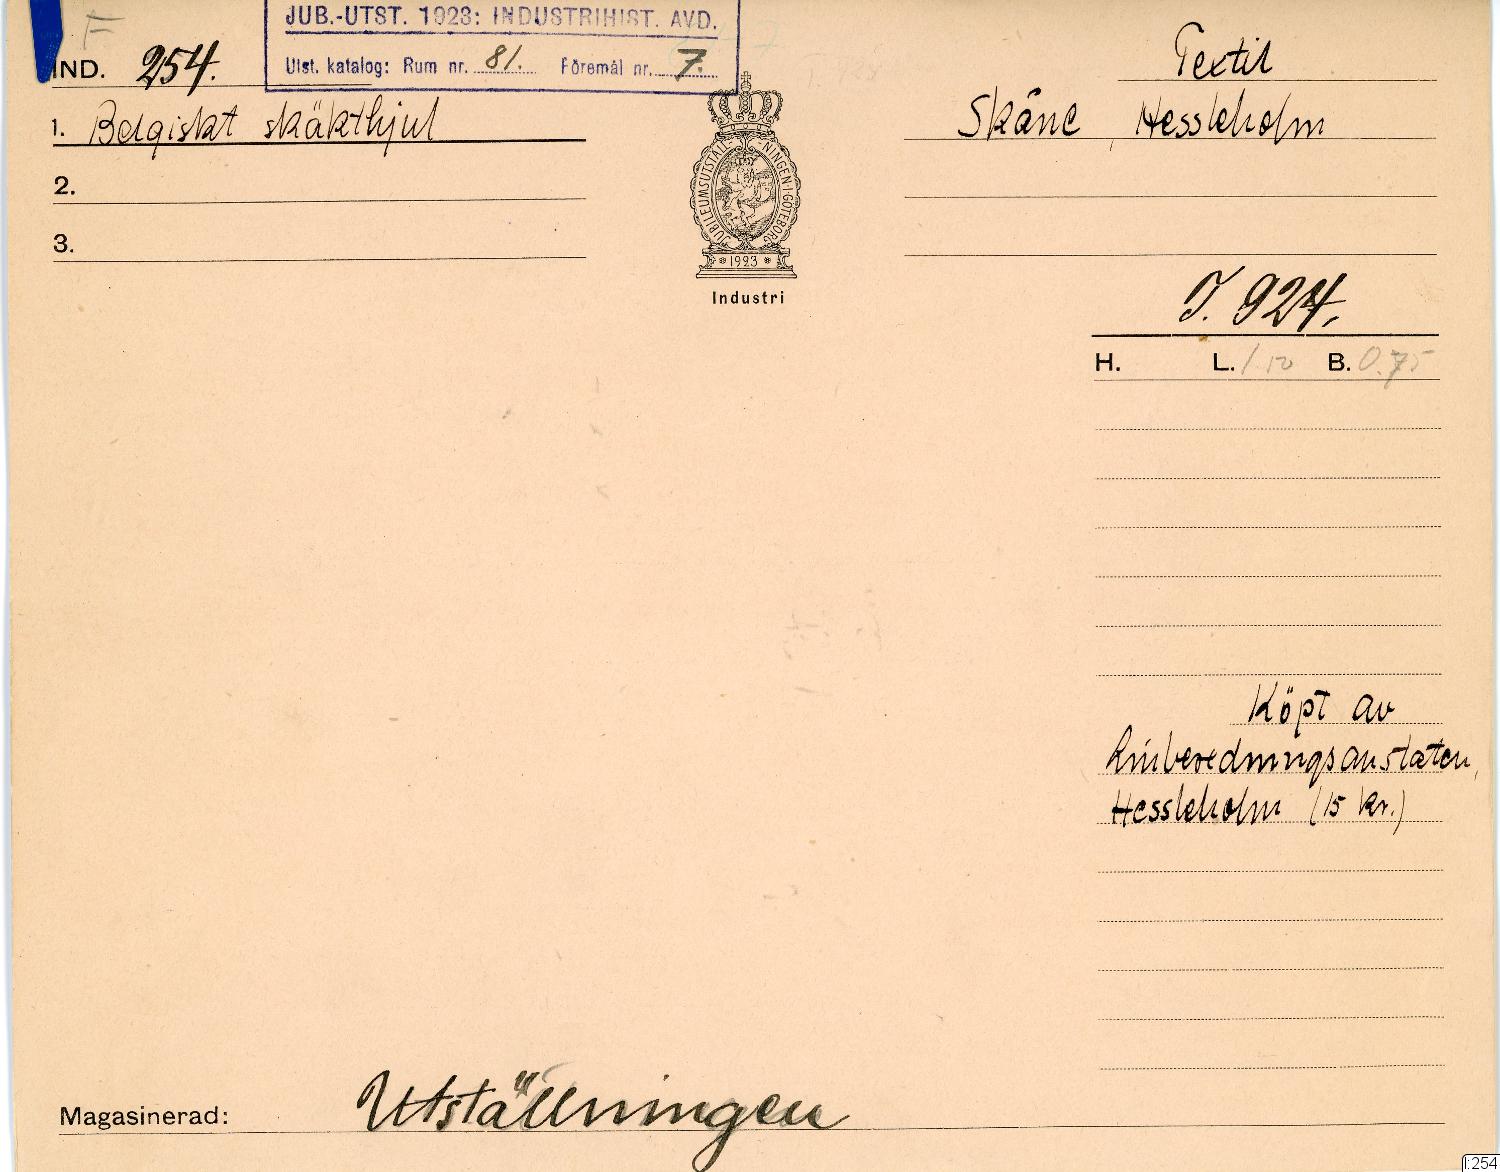 F
JUB.-UTST. 1923: INDUSTRIHIST. AVD.
Utst. katalog: Rum nr. 81. Föremål nr. 7.
IND. 254.
1. Belgiskt skäkthjul
2.
3.
JUBILEUMSUTSTÄLLNINGEN·I·GÖTEBORG
1923
Industri
Textil
Skåne, Hessleholm
I. 924.
H. L. 1.10 B. 0.75
Köpt av
Linberedningsanstaten,
Hessleholm (15 kr.)
Magasinerad: Utställningen
I:254